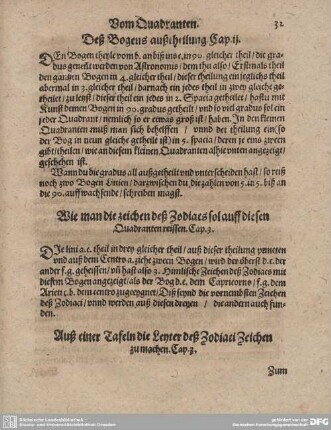 Vom Quadranten. 32
Deß Bogens außtheilung Cap. ij.
DEn Bogen theyle vom b. an biß uns c, in 90. gleicher theil / die gra-
dus genest werden von Astronomis / dem thu also / Erstmals theil
den gantzen Bogen in 4. gleicher theil / dieser theilung ein jeglichs theil
abermal in 3. gleicher theil / darnach ein jedes theil in zwey gleiche ge-
theilet / zu letst / dieser theil ein jedes in 2. Spacia getheilet / hastu mit
Kunst deinen Bogen in 90. gradus getheilt / vnd so viel gradus sol ein
jeder Quadrant / nemlich so er etwas groß ist / haben. In den kleinen
Quadranten muß man sich behelffen / vnnd der theilung ein (so
der Bog in neun gleiche getheilt ist) in 5. spacia / deren je eins zween
gibt / theilen / wie an diesem kleinen Quadranten alhie vnten angezeygt
geschehen ist.
Wann du die gradus all außgetheilt vnd vnterscheiden hast / so reiß
noch zwo Bogen Linien / darzwischen du die zahlen von 5. in 5. biß an
die 90. auffwachsende / schreiben magst.
Wie man die zeichen deß Zodiacs sol auff diesen
Quadranten reissen. Cap. 3.
DIe lini a. c. theil in drey gleicher theil / auß dieser theilung puncten
vnd auß dem Centro a. ziehe zween Bogen / wird der öberst d. e. der
ander f. g. geheissen / vñ hast also 3. Himlische Zeichen deß Zodiacs mit
diesen Bogen angezeigt / als der Bog d. e. dem Capricorno / f. g. dem
Arieti / c. b. dem centro zugeeygnet / Diß seynd die vornembsten Zeichen
deß Zodiaci / vnnd werden auß diesen dreyen / die andern auch fun-
den.
Auß einer Tafeln die Leyter deß Zodiaci Zeichen
zu machen. Cap. 3.
Zum